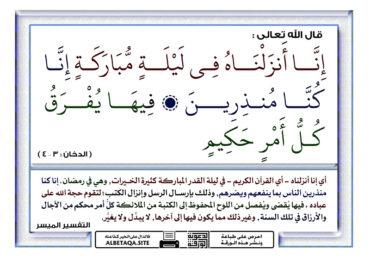 قال الله تعالى :
إِنَّـا أَنزَلْنَـاهُ فِـى لَيْلَـةٍ مُّبَارَكَـةٍ إِنَّـا
كُنَّـا مُنـذِرِيـنَ ۞ فِيهَـا يُفْـرَقُ
كُـلُّ أَمْرٍ حَكِيمٍ
( الدخان : ٣ - ٤ )
أي إنا أنزلناه - أي القرآن الكريم - في ليلة القدر المباركة كثيرة الخيرات , وهي في رمضان . إنا كنا
منذرين الناس بما ينفعهم ويضرهم , وذلك بإرسال الرسل وإنزال الكتب ؛ لتقوم حجة الله على
عباده , فيها يُقضى ويُفصل من اللوح المحفوظ إلى الكتبة من الملائكة كلُّ أمر محكم من الآجال
والأرزاق في تلك السنة , وغير ذلك مما يكون فيها إلى آخرها , لا يبدَّل ولا يغيَّر .
التفسير الميسر
احرص على طباعة
ونشر هذه الورقة
فالدال على الخير كفاعله
ALBETAQA.SITE